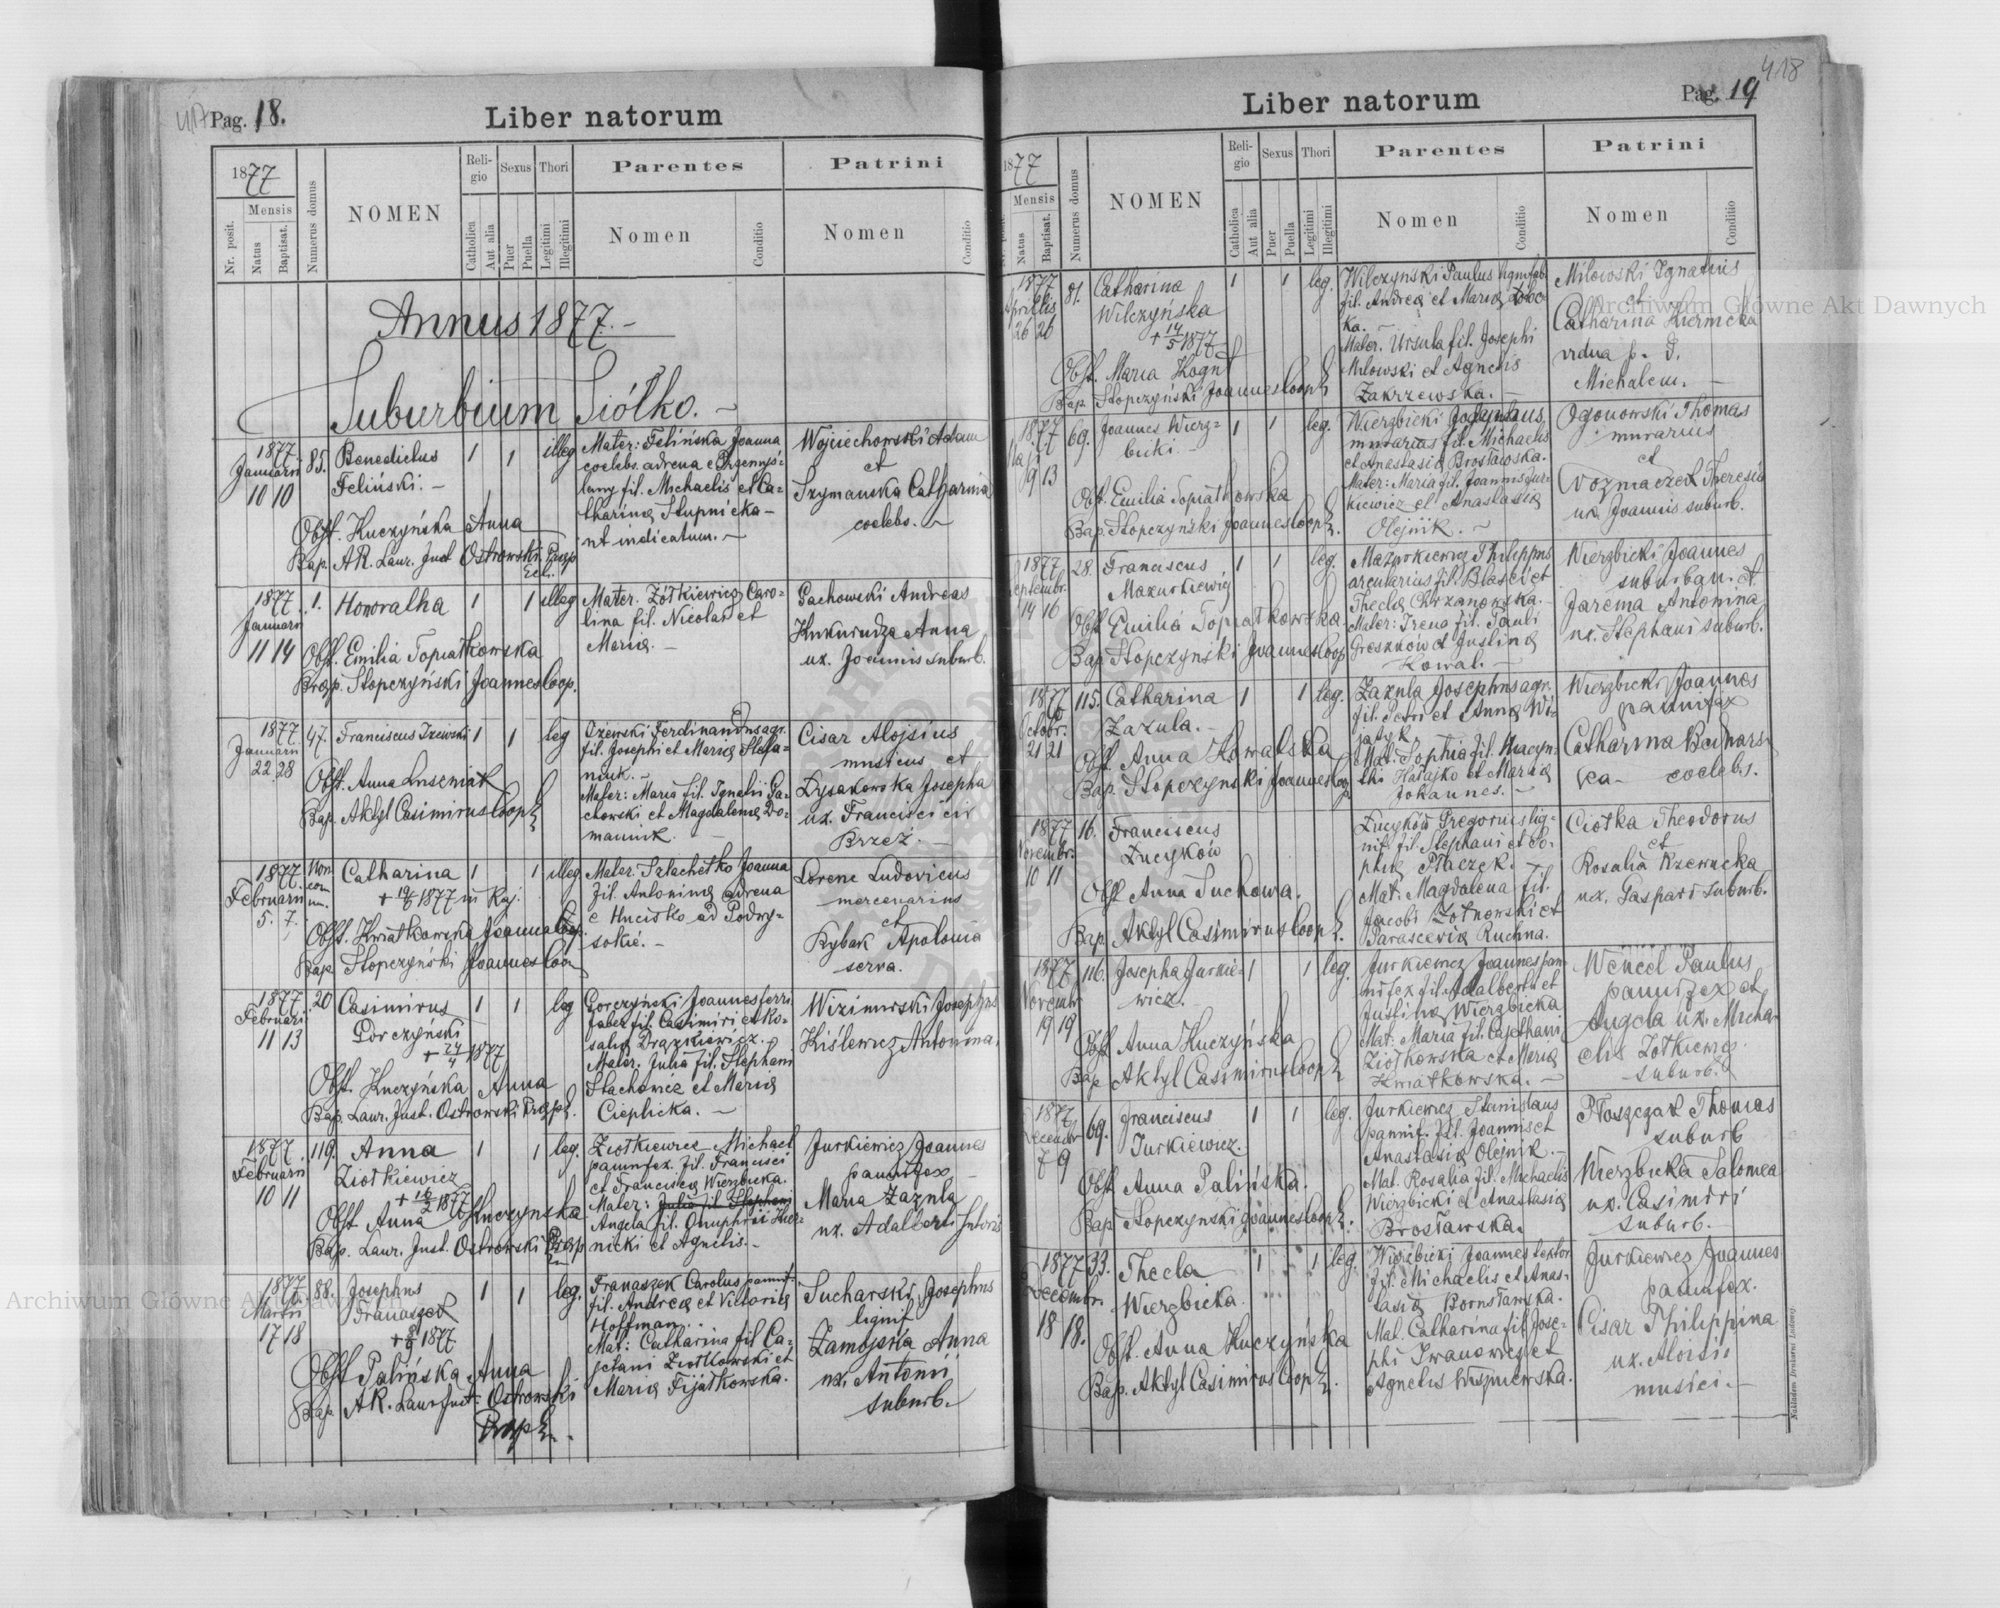 417
Pag. 18.
Liber natorum
1877
Religio
Sexus
Thori
Parentes
Patrini
Mensis
Nr. posit.
Natus
Baptisat.
Numerus domus
NOMEN
Catholica
Aut alia
Puer
Puella
Legitimi
Illegitimi
Nomen
Conditio
Nomen
Conditio
Annus 1877. -
Suburbium Siółko. -
1877
Januarii
10 10
85.
Benedictus
Feliński. -
1 1 illeg
Obst. Kuczyńska Anna
Bap. AR. Laur. Just Ostrowski Praep
Eccl.
Mater: Felińska Joanna
coelebs. advena e Przemyś-
lany fil. Michaelis et Ca-
tharina Stupnicka -
nt indicatum. -
Wojciechowski Adam
et
Szymanska Catharina
coelebs.
1877
Januarii
11 14
1.
Honoratha
1 1 illeg
Obst. Emilia Topiatkowska
Bap. Stopczyński Joannes Coop.
Mater. Żółkiewicz Caro-
lina fil. Nicolai et
Maria. -
Gachowski Andreas
Kukurudza Anna
ux. Joannis suburb.
1877
Januarii
22 28
47.
Franciscus
1 1 leg
Obst. Anna
Bap. Aktyl Casimirus Coop
Ożewski Ferdinandus agr.
fil. Josephi et Maria Stefa-
niuk. -
Mater: Maria fil. Ignatii Ga-
chowski et Magdalena Do-
maniuk
Cisar Alojsius
musicus et
Dysakowska Josepha
ux. Francisci civ
Brzeż. -
1877
Februarii
5. 7.
Catharina
1877 in
1 1 illeg
Obst. Kwiatkowska Joanna
Bap. Stopczyński Joannes Coop
Mater: Szlachetko Joanna
fil. Antonina advena
e Hucisko ad Podwy-
sokie. -
Lorenc Ludovicus
mercenarius
et
Rybak Apolonia
serva.
1877
Februarii
11 13
20
Casimirus
Gorczyński
+ 24/4 1877
1 1 leg
Obst. Kuczyńska Anna
Bap. Laur. Just. Ostrowski Praep.
Gorczyński Joannes ferri
faber fil. Casimiri et Ro-
salia Drążkiewicz. -
Mater. Julia fil. Stephani
Stachowicz et Maria
Cieplicka. -
Wizimirski Josephus
Kiślewicz Antonina.
1877
Februarii
10 11
119.
Anna
Ziołkiewicz
1877
1 1 leg.
Obst Anna Kuczyńska
Bap. Laur. Just. Ostrowski Praep
Ziołkiewicz Michael
pannifex. fil. Francisci
et Francisca Wierzbicka.
Mater: Julia fil Stephani
Angela fil. Onuphrii Kier-
nicki et Agnetis. -
Jurkiewicz Joannes
pannifex
Maria Zazula
ux. Adalberti
1877
Martii
17 18
88.
Josephus
Franaszek
1877
1 1 leg.
Obst Palińska Anna
Bap. AR. Laur Just. Ostrowski
Praep
Franaszek Carolus pannif.
fil. Andrea et Victoria
Hoffman.
Mat: Catharina fil Ca-
jetani Ziołkowski et
Maria Fijałkowska.
Sucharski Josephus
lignif
Zamojska Anna
ux. Antoni
suburb.
418
Pag. 19
Liber natorum
1877
Religio
Sexus
Thori
Parentes
Patrini
Mensis
Natus
Baptisat.
Numerus domus
NOMEN
Catholica
Aut alia
Puer
Puella
Legitimi
Illegitimi
Nomen
Conditio
Nomen
Conditio
1877
Aprilis
26 26
81.
Catharina
Wilczyńska
+ 14/5 1877
1 1 leg.
Obst. Maria Kogut
Bap. Stopczyński Joannes Coop
Wilczyński Paulus lignifab
fil. Andrea et Maria
ka. -
Mater. Ursula fil. Josephi
Milowski et Agnetis
Zakrzewska. -
Milowski Ignatius
et
Catharina Kiernicka
vidua p. d.
Michalem. -
1877
Maji
9 13
69.
Joannes Wierz-
bicki. -
1 1 leg.
Obst. Emilia Topiatkowska
Bap. Stopczyński Joannes Coop
Wierzbicki
murarius fil. Michaelis
et Anastasia Brosławska.
Mater: Maria fil. Joannis Jur-
kiewicz et Anastasia
Olejnik. -
Ogonowski Thomas
murarius
et
Woźniaczek Theresia
ux. Joannis suburb.
1877
Septembr.
14 16
28.
Franciscus
Mazurkiewicz
1 1 leg.
Obst Emilia Topiatkowska
Bap Stopczynski Joannes Coop
Mazurkiewicz Philippus
arcularius fil. Blasii et
Thecla Chrzanowska. -
Mater: Irena fil. Pauli
Greszków et Justina
Kowal. -
Wierzbicki Joannes
suburban. et
Jarema Antonina
ux. Stephani suburb.
1877
Octobr.
21 21
115.
Catharina
Zazula. -
1 1 leg.
Obst Anna Kowalska
Bap. Stopczynski Joannes Coop
Zazula Josephus agr.
fil. Petri et Anna Wi-
jatyk
Mat. Sophia fil. Hiacyn-
thi Hatajko et Maria
Johannes. -
Wierzbicki Joannes
pannifex
Catharina Bednars-
ka - coelebs.
1877
Novembr.
10 11
16.
Franciscus
Łucyków
Obst Anna Suchowa.
Bap. Aktyl Casimirus Coop
Łucyków Gregorius lig-
nif. fil. Stephani et So-
phia Płaczek. -
Mat: Magdalena fil.
Jacobi Żotnowski et
Parascevia Ruchna.
Ciotka Theodorus
et
Rosalia Krzewicka
ux. Gaspari suburb.
1877
Novembr
19 19
116.
Josepha Jurkie-
wicz. -
1 1 leg.
Obst Anna Kuczyńska
Bap Aktyl Casimirus Coop
Jurkiewicz Joannes pan-
nifex fil. Adalberti et
Justina Wierzbicka
Mat: Maria fil. Cajethani
Ziołkowska et Maria
Kwiatkowska. -
Wencel Paulus
pannifex et
Angela ux. Micha-
elis Żotkiewicz
suburb.
1877
Decembr
7 9
69.
Franciscus
Jurkiewicz.
1 1 leg.
Obst Anna Palińska.
Bap. Stopczynski Joannes Coop.
Jurkiewicz Stanislaus
pannif. fil. Joannis et
Anastasia Olejnik. -
Mat. Rosalia fil. Michaelis
Wierzbicki et Anastasia
Brosławska.
Płoszczak Thomas
suburb
Wierzbicka Salomea
ux. Casimiri
suburb. -
1877
Decembr.
18 18.
33.
Thecla
Wierzbicka.
1 1 leg.
Obst. Anna Kuczyńska
Bap. Aktyl Casimirus Coop.
Wierzbicki Joannes textor
fil. Michaelis et Anas-
tasia Bornsławska.
Mat. Catharina fil Jose-
phi Iwanowicz et
Agnetis Wiśniewska.
Jurkiewicz Joannes
pannifex.
Cisar Philippina
ux. Aloisii
musici. -
Nakładem Drukarni Ludowej.
Archiwum Główne Akt Dawnych
Archiwum Główne Akt Dawnych